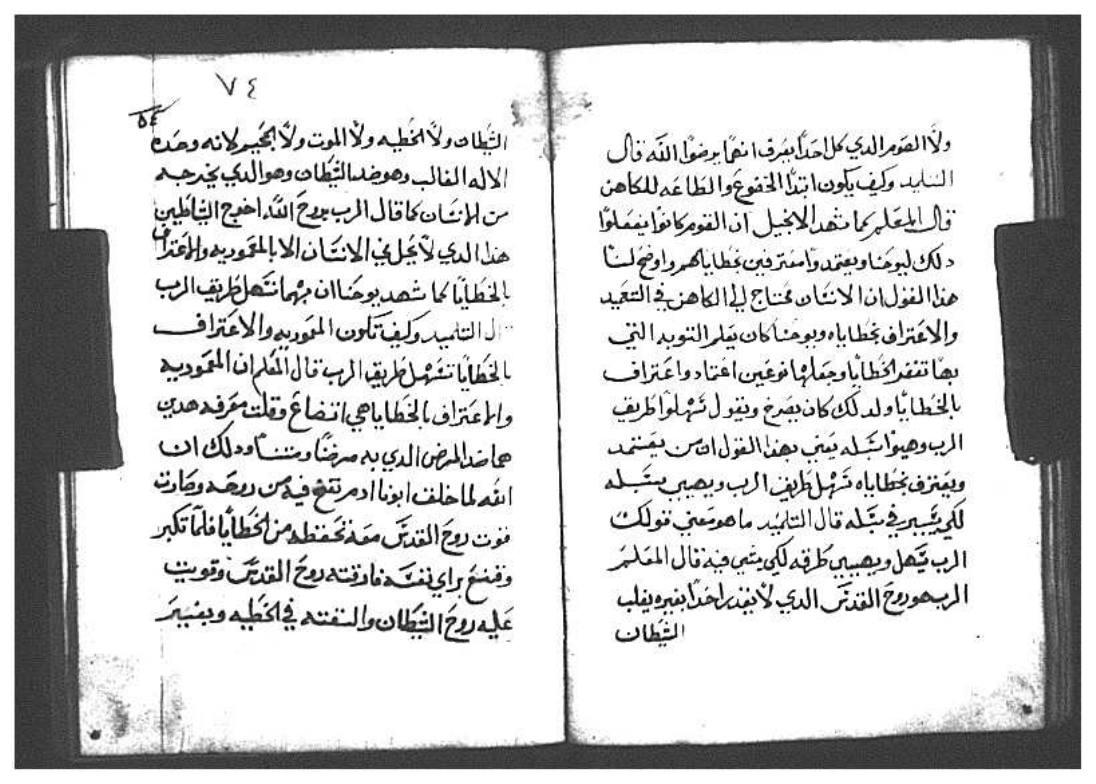 ولا القوم الدي كل احدا يعرف انهما يرضوا الله قال
التلميد وكيف يكون ابتدا الخضوع والطاعه للكاهن
قال المعلم كما شهد الانجيل ان القوم كانوا يفعلوا
دلك ليوحنا ويعتمدوا معترفين بخطاياهم واوضح لنا
هدا القول ان الانسان محتاج الي الكاهن في التعميد
والاعتراف بخطاياه ويوحنا كان يعلم التوبه التي
بها تغفر الخطايا وجعلها نوعين اعتماد واعتراف
بالخطايا ولدلك كان يصرخ ويقول سهلوا طريق
الرب وهيوا سبله يعني بهدا القول ان من يعتمد
ويعترف بخطاياه سهل طريق الرب ويهيي سبله
لكي يسير في سبله قال التلميد ما هو معني قولك
الرب يسهل ويهيي طرقه لكي يمشي فيه قال المعلم
الرب هو روح القدس الدي لا يقدر احدا بغيره يغلب
الشيطان
٧٤
٥٤
الشيطان ولا الخطيه ولا الموت ولا الجحيم لانه وحده
الاله الغالب وهو ضد الشيطان وهو الدي يخرجه
من الانسان كما قال الرب بروح الله اخرج الشياطين
هدا الدي لا يحل في الانسان الا بالمعموديه والاعتراف
بالخطايا كما شهد يوحنا ان بهما تسهل طريق الرب
قال التلميد وكيف تكون المعموديه والاعتراف
بالخطايا تسهل طريق الرب قال المعلم ان المعموديه
والاعتراف بالخطايا هي اتضاع وقلت معرفه هدين
هما ضد المرض الدي به مرضنا ومتنا ودلك ان
الله لما خلق ابونا ادم نفخ فيه من روحه وصارت
قوت روح القدس معه تحفظه من الخطايا فلما تكبر
وقنع براي نفسه فارقته روح القدس وقويت
عليه روح الشيطان والقته في الخطيه وبغير